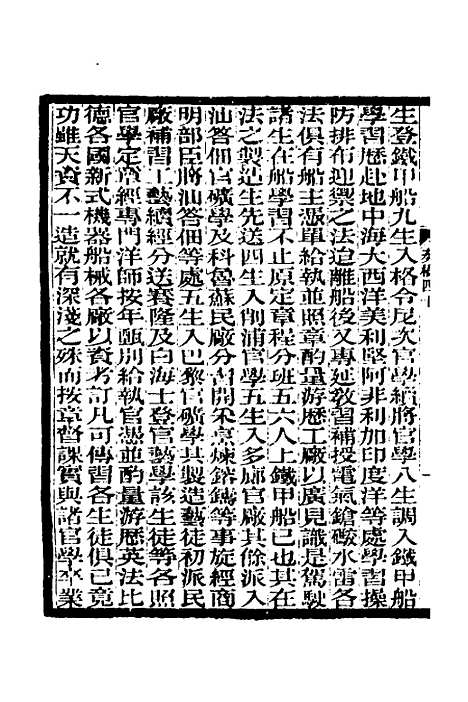 生登鐵甲船九生入格令尼次官學續將官學八生調入鐵甲船
學習歷赴地中海大西洋美利堅阿非利加印度洋等處學習操
防排布迎禦之法迨離船後又專延敎習補授電氣鎗礮水雷各
法俱有船主憑單給執並照章酌量游歷工廠以廣見識是駕駛
諸生在船學習不止原定章程分班五六人上鐵甲船已也其在
法之製造生先送四生入削浦官學五生入多廊官廠其餘派入
汕答佃官礦學及科魯蘇民廠分習開采烹煉鎔鑄等事旋經商
明部臣將汕答佃等處五生入巴黎官礦學其製造藝徒初派民
廠補習工藝續經分送賽隆及白海士登官藝學該生徒等各照
官學定章經專門洋師按年甄別給執官憑並酌量游歷英法比
德各國新式機器船械各廠以資考訂凡可傳習各生徒俱已竟
功雖天資不一造就有深淺之殊而按章督課實與諸官學卒業